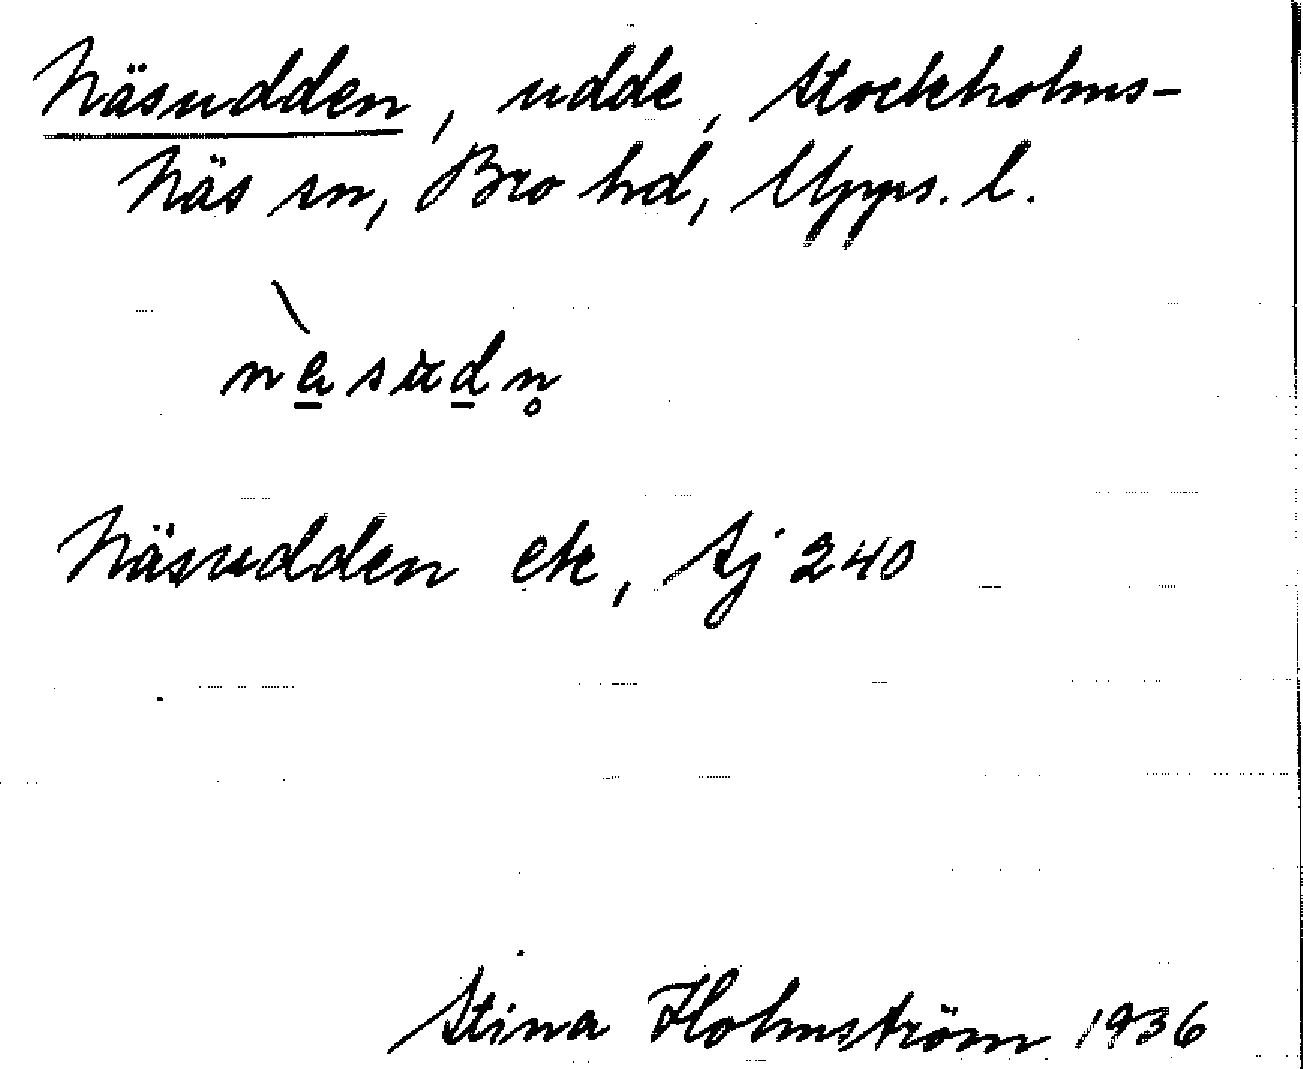 Näsudden, udde, Stockholms-
Näs sn, Bro hd, Upps. l.
Näsudden ek, Aj 240
Stina Holmström 1936